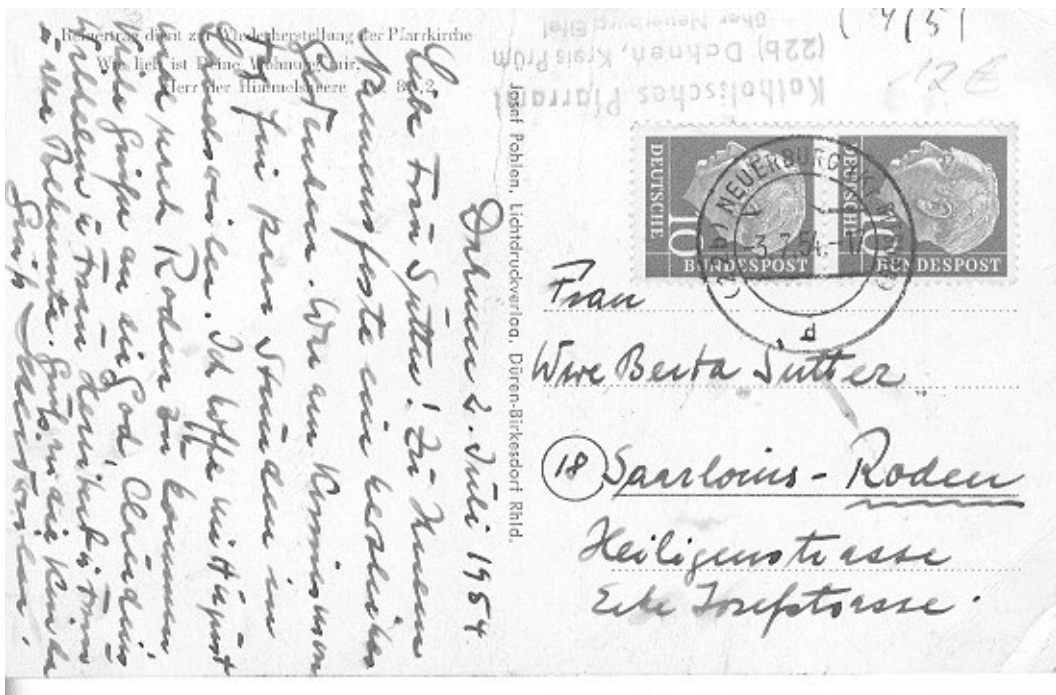 Reinertrag dient zur Wiederherstellung der Pfarrkirche
Wie lieb ist Deine Wohnung mir,
Herr der Himmelsheere
Dahnen 2. Juli 1954.
Liebe Frau Sutter! Zu Ihrem
Namensfeste ein herzliches
Gedenken. War am Kommunion
Tag für paar Stunden im
Landsweiler. Ich hoffe im August
mal nach Roden zu kommen
Viele Grüße an
Wilhelm u. Frau,
Bekannte. an die Kinder
Gruß
Josef Pohlen, Lichtdruckverlag, Düren-Birkesdorf Rhld.
Katholisches Pfarramt
(22b) Dahnen, Kreis Prüm
über Neuerburg Eifel
12 €
DEUTSCHE
10
BUNDESPOST
DEUTSCHE
10
BUNDESPOST
(22b) NEUERBURG
-3.7.54.-17
d
Frau
Wwe Berta Sutter
(18) Saarlouis - Roden
Heiligenstrasse
Ecke Josefstrasse.